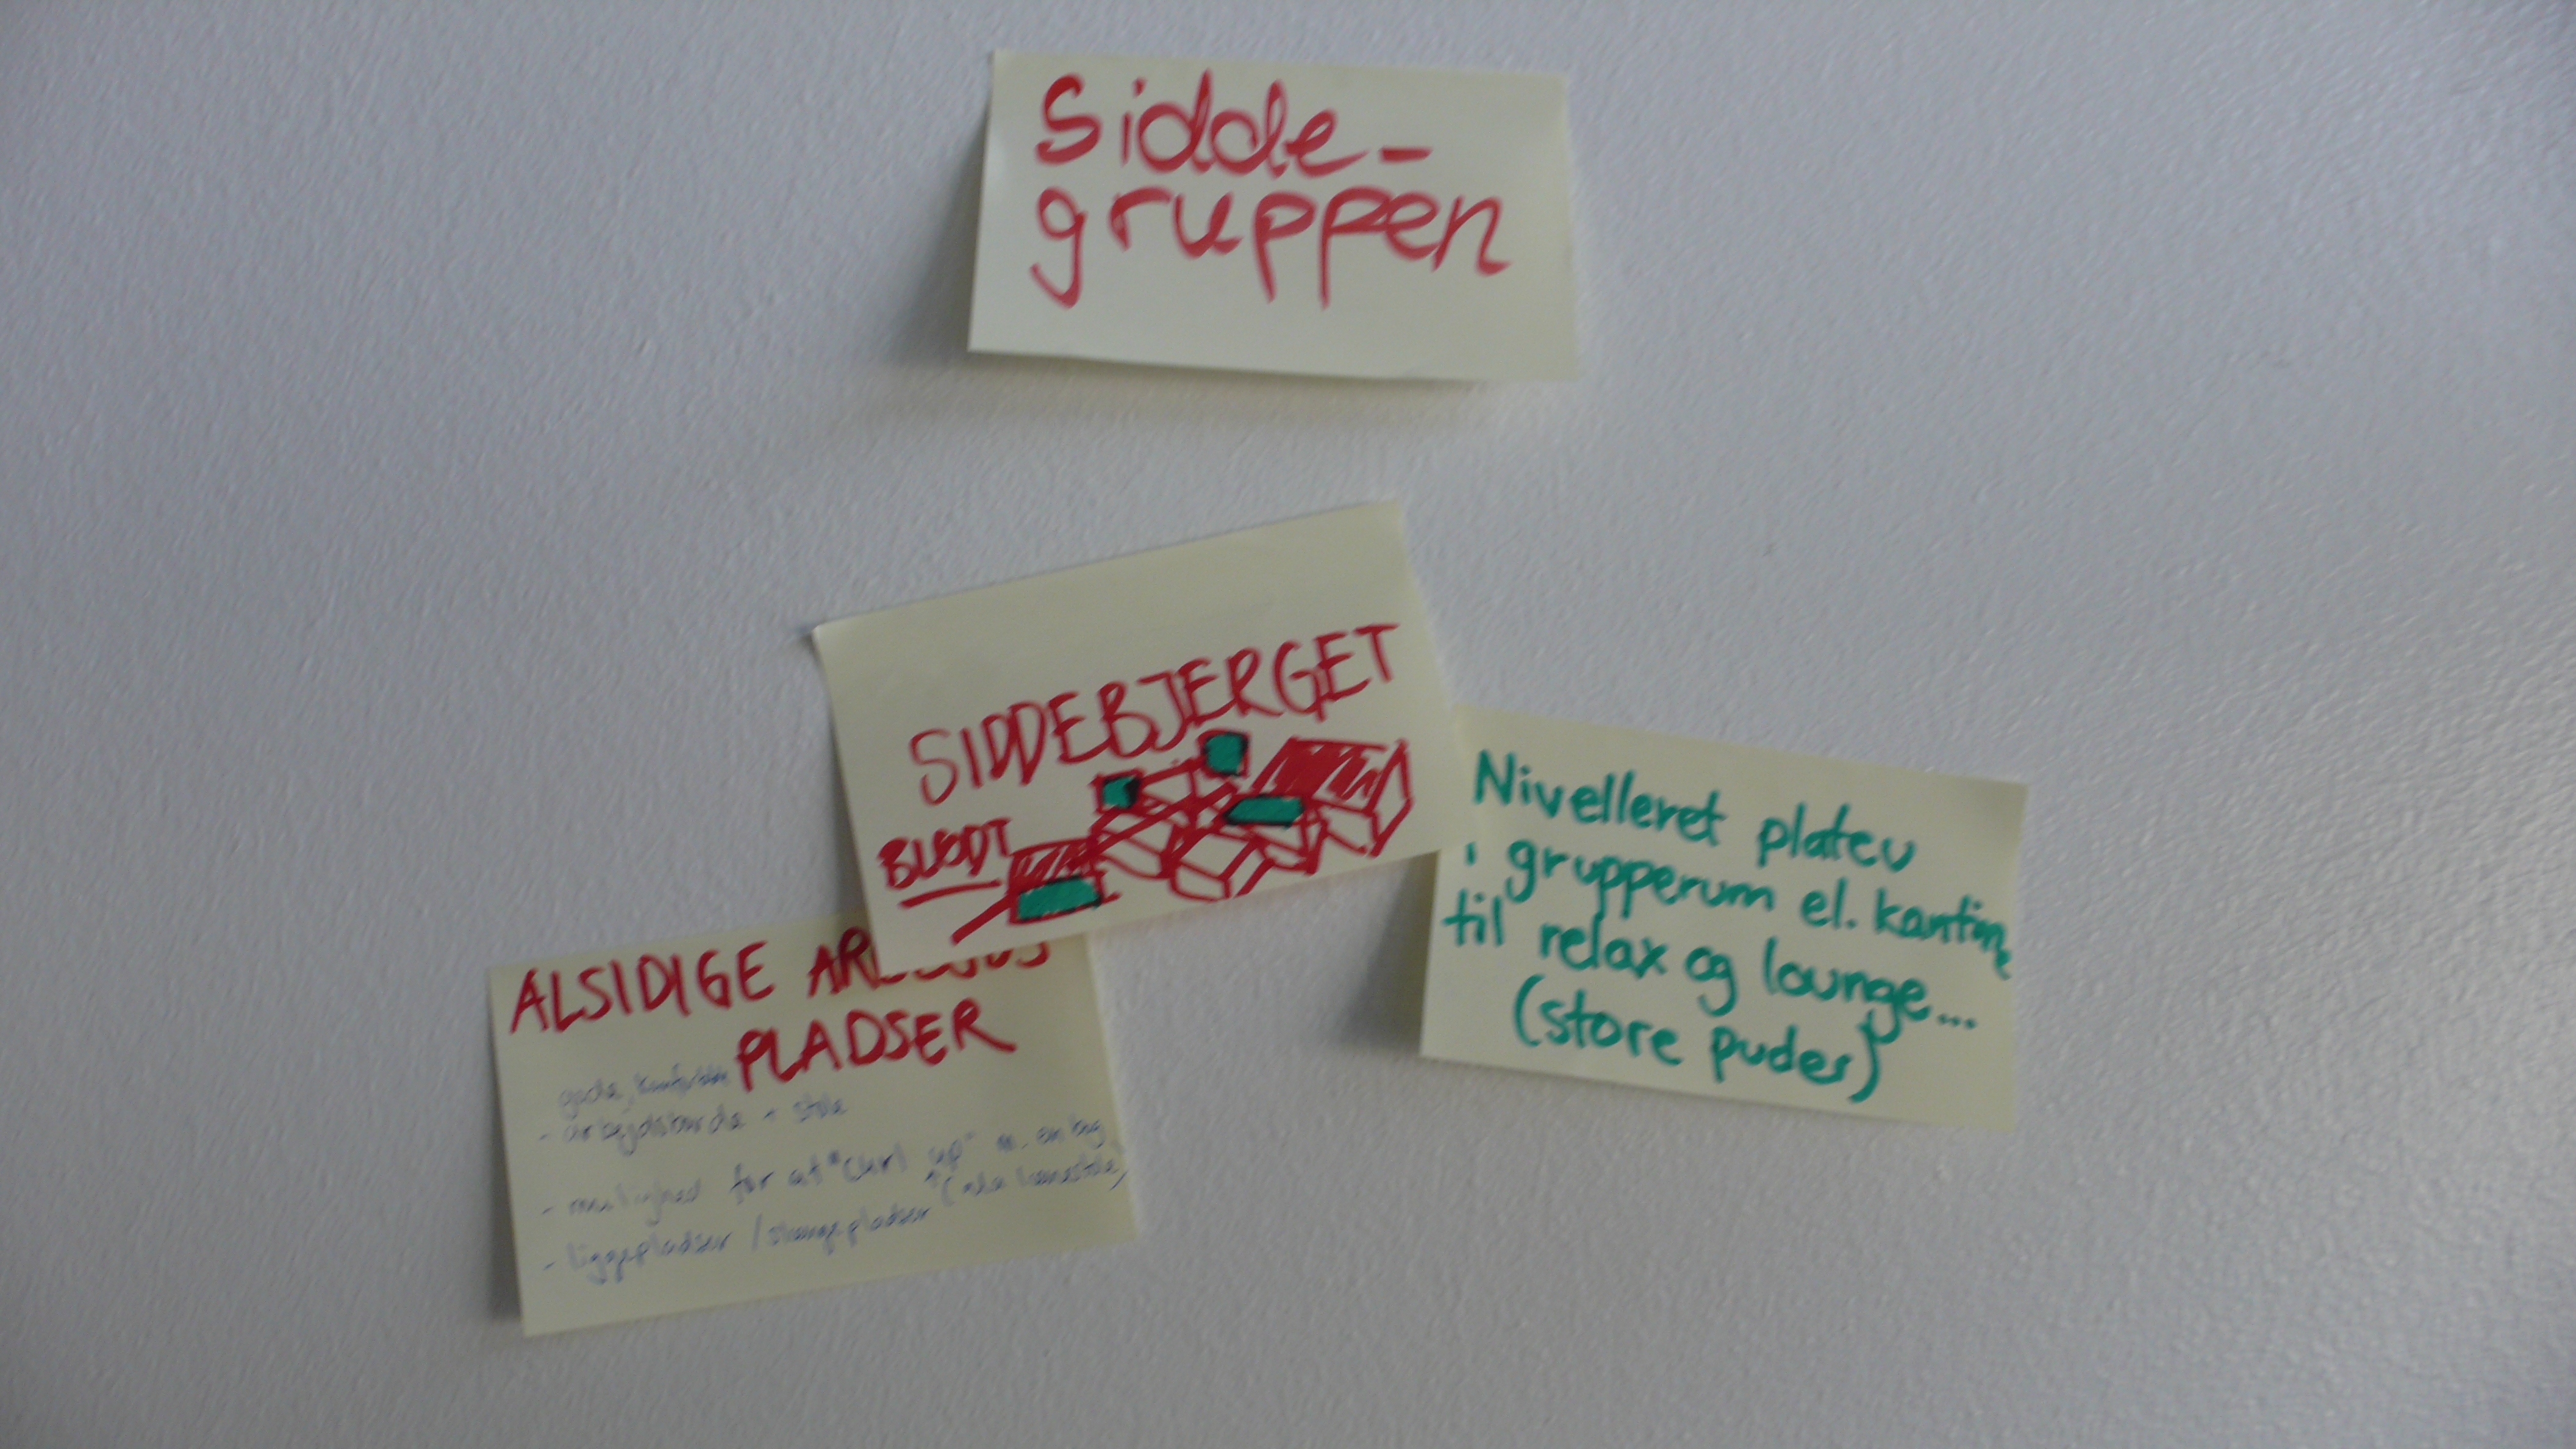 Sidde-
gruppen
SIDDEBJERGET
BLØDT
Nivelleret plateu
i grupperum el. kantine
til relax og lounge...
(store puder)
ALSIDIGE
PLADSER
gode,
- arbejdsborde + stole
- mulighed for at "curl up" m. en bog
- liggepladser /